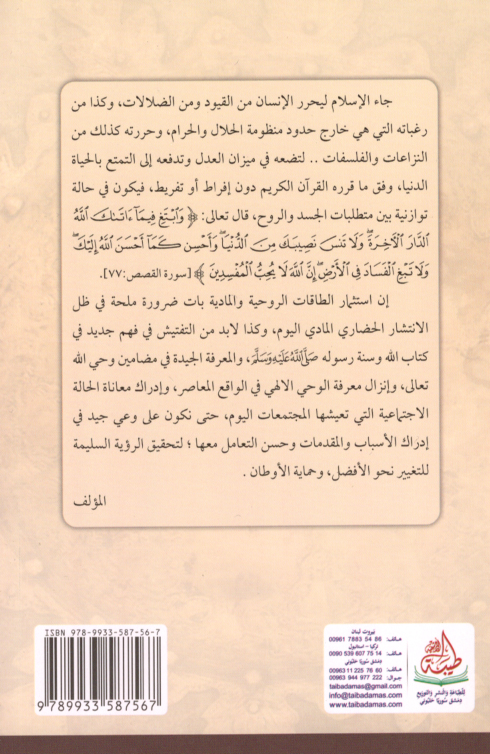 جاء الإسلام ليحرر الإنسان من القيود ومن الضلالات، وكذا من
رغباته التي هي خارج حدود منظومة الحلال والحرام، وحررته كذلك من
النزاعات والفلسفات .. لتضعه في ميزان العدل وتدفعه إلى التمتع بالحياة
الدنيا، وفق ما قرره القرآن الكريم دون إفراط أو تفريط، فيكون في حالة
توازنية بين متطلبات الجسد والروح، قال تعالى: ﴿ وَٱبْتَغِ فِيمَآ ءَاتَىٰكَ ٱللَّهُ
ٱلدَّارَ ٱلْءَاخِرَةَ ۖ وَلَا تَنسَ نَصِيبَكَ مِنَ ٱلدُّنْيَا ۖ وَأَحْسِن كَمَآ أَحْسَنَ ٱللَّهُ إِلَيْكَ ۖ
وَلَا تَبْغِ ٱلْفَسَادَ فِى ٱلْأَرْضِ ۖ إِنَّ ٱللَّهَ لَا يُحِبُّ ٱلْمُفْسِدِينَ ﴾ [سورة القصص:٧٧].
إن استثمار الطاقات الروحية والمادية بات ضرورة ملحة في ظل
الانتشار الحضاري المادي اليوم، وكذا لابد من التفتيش في فهم جديد في
كتاب الله وسنة رسوله صَلَّى اللَّهُ عَلَيْهِ وَسَلَّمَ، والمعرفة الجيدة في مضامين وحي الله
تعالى، وإنزال معرفة الوحي الالهي في الواقع المعاصر، وإدراك معاناة الحالة
الاجتماعية التي تعيشها المجتمعات اليوم، حتى نكون على وعي جيد في
إدراك الأسباب والمقدمات وحسن التعامل معها ؛ لتحقيق الرؤية السليمة
للتغيير نحو الأفضل، وحماية الأوطان .
المؤلف
ISBN 978-9933-587-56-7
9 789933 587567
بيروت لبنان
هاتف: 00961 7883 54 86
تركيا - اسطنبول
هاتف: 0090 539 607 75 14
دمشق سوريا حلبوني
هاتف: 00963 11 225 76 60
جوال: 00963 944 977 222
taibadamas@gmail.com
info@taibadamas.com
www.taibadamas.com
طيبة
للطباعة والنشر والتوزيع
دمشق سوريا حلبوني